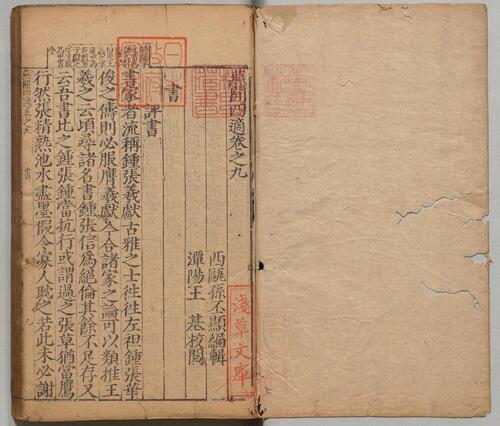 燕閒四適卷之九
西甌孫丕顯編輯
潭陽王 基校閱
書
評書
書家者流稱鍾張羲獻古雅之士徃徃左袒鍾張華
俊之儔則必服膺羲獻今合諸家之論可以類推王
羲之云頃尋諸名書鍾張信爲絕倫其餘不足存又
云吾書比之鍾張鍾當抗行或謂過之張草猶當鴈
行然張精熟池水盡墨假令寡人耽之若此未必謝
淺草文庫